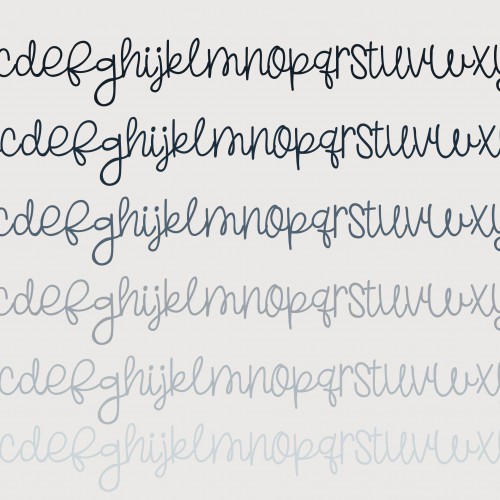 cdefghijklmnopqrstuvwxy
cdefghijklmnopqrstuvwx
cdefghijklmnopqrstuvwxy
cdefghijklmnopqrstuvwxy
cdefghijklmnopqrstuvwx
cdefghijklmnopqrstuvwxy